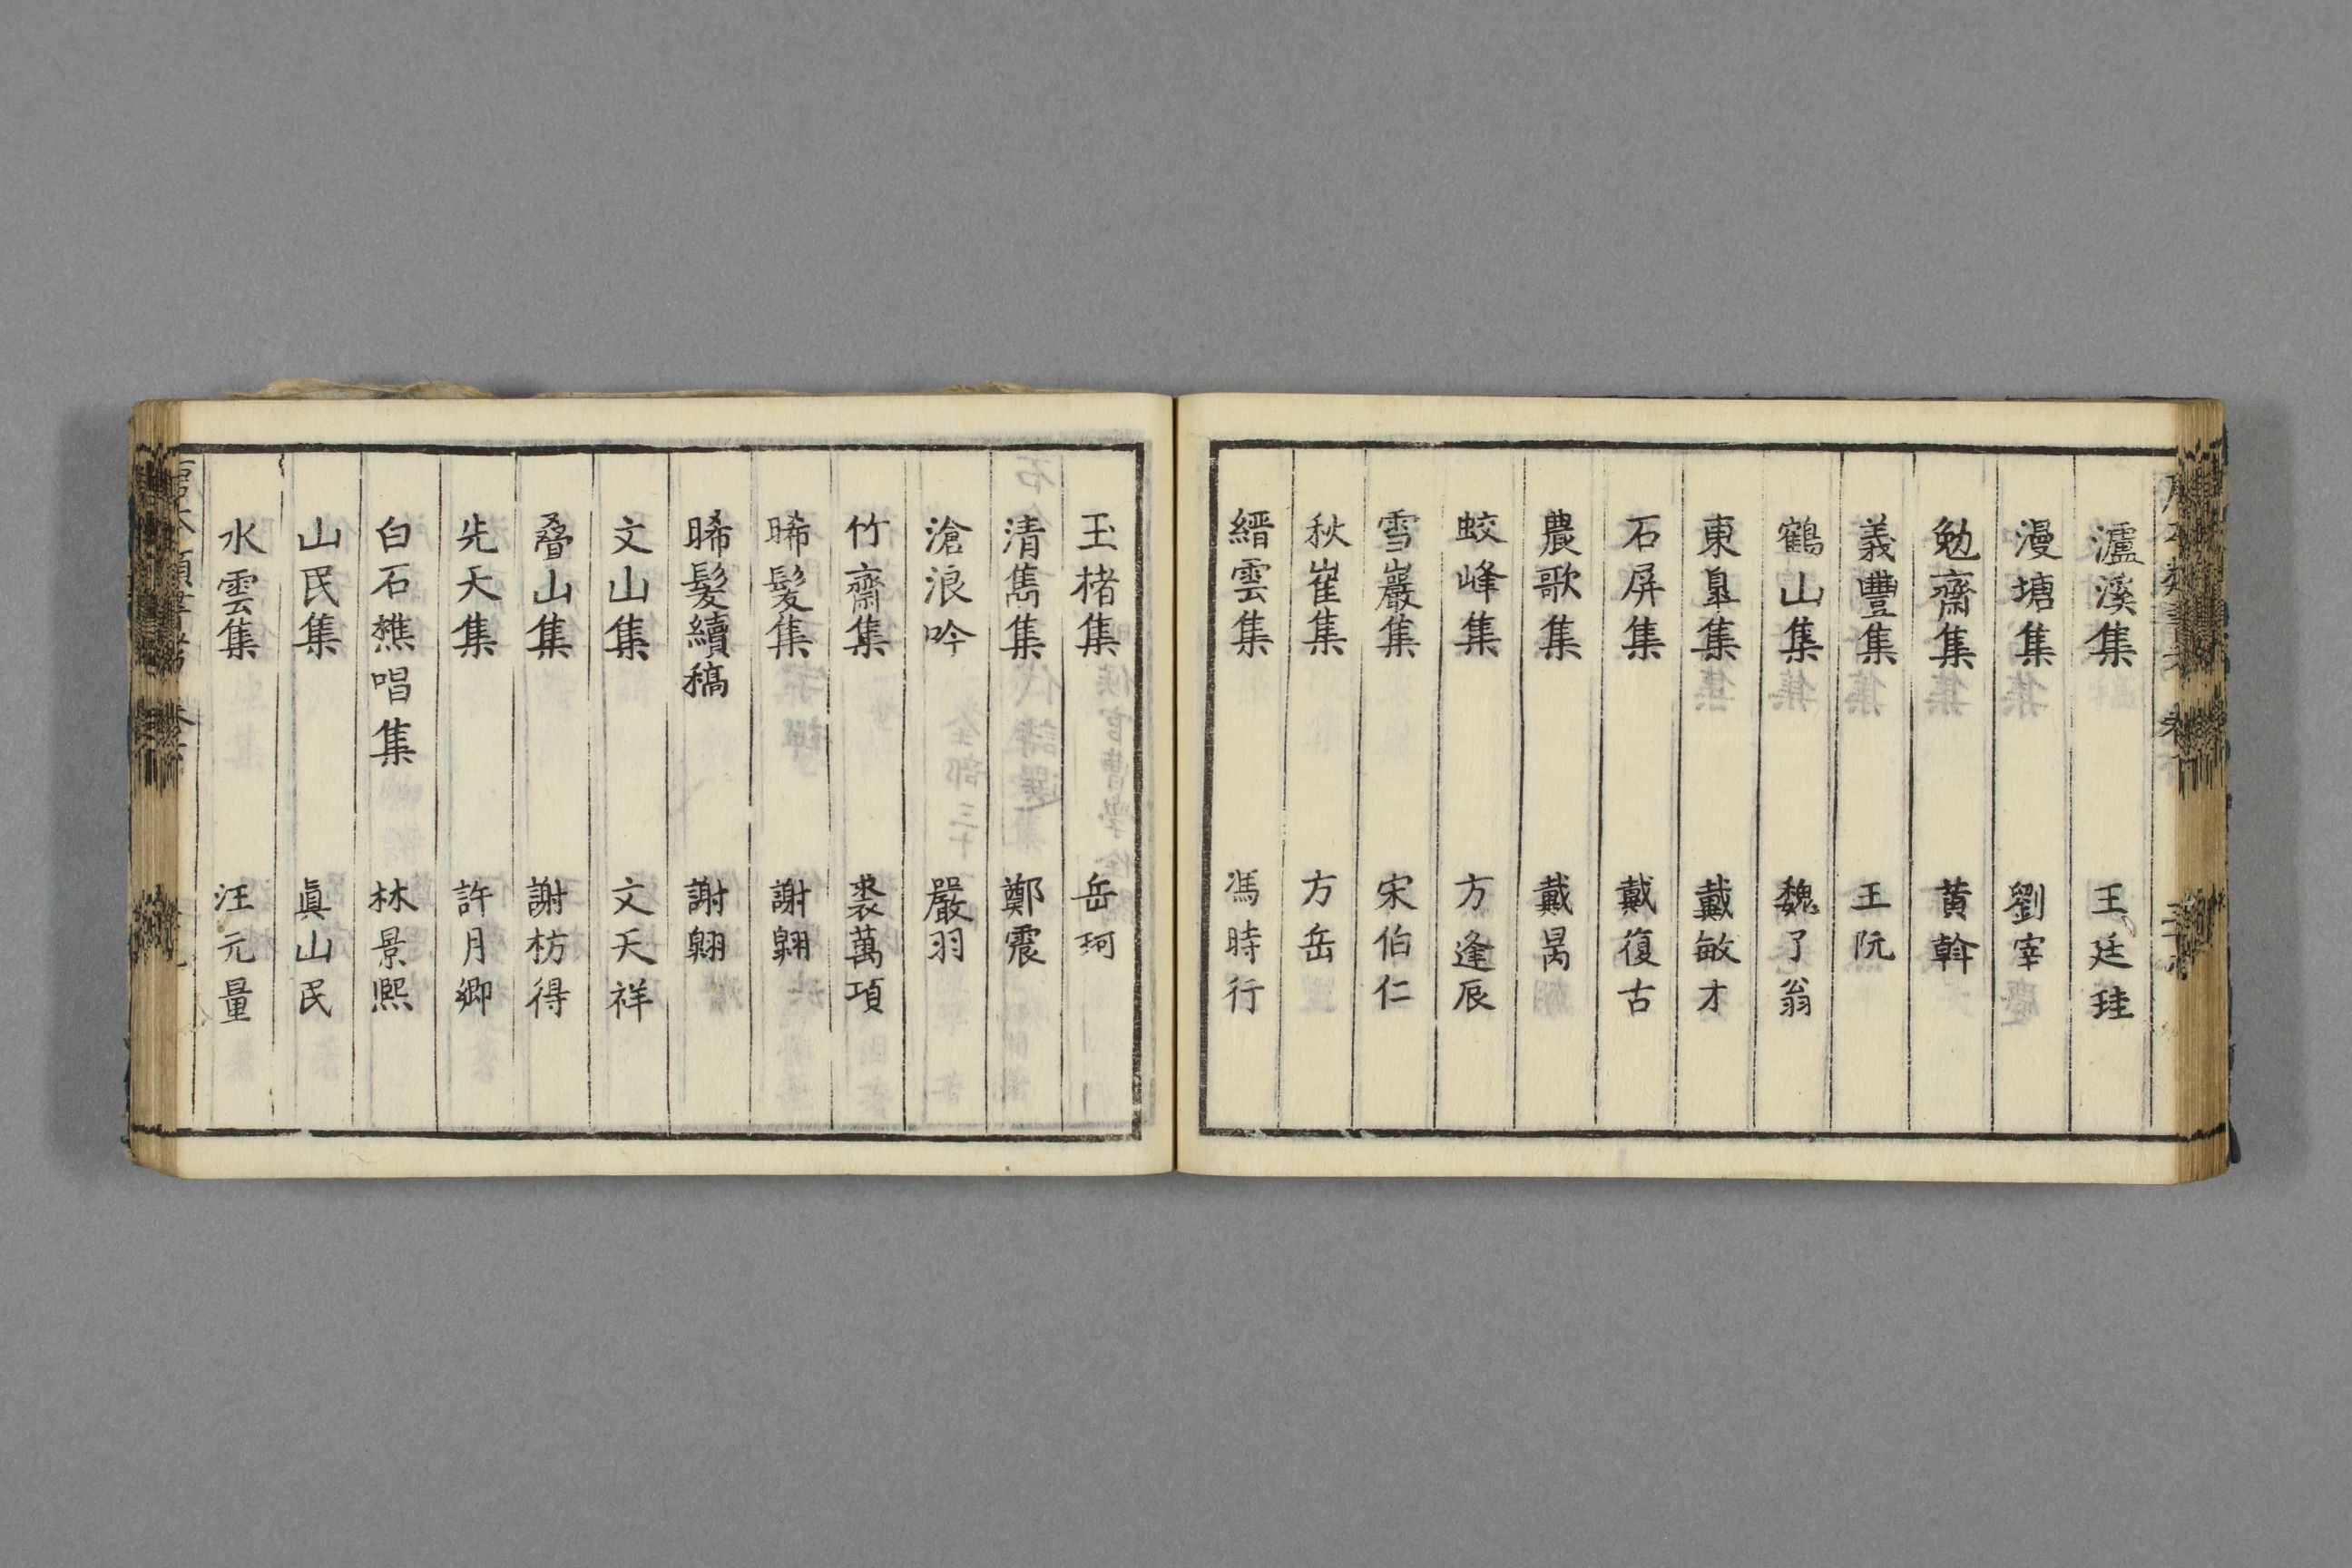 瀘溪集 王廷珪
漫塘集 劉宰
勉齋集 黄榦
義豐集 王阮
鶴山集 魏了翁
東皐集 戴敏才
石屏集 戴復古
農歌集 戴昺
蛟峰集 方逢辰
雪巖集 宋伯仁
秋崔集 方岳
縉雲集 馮時行
玉楮集 岳珂
清雋集 鄭震
滄浪吟 嚴羽
竹齋集 裘萬項
晞髮集 謝翺
晞髮續稿 謝翺
文山集 文天祥
叠山集 謝枋得
先天集 許月卿
白石樵唱集 林景熙
山民集 眞山民
水雲集 汪元量